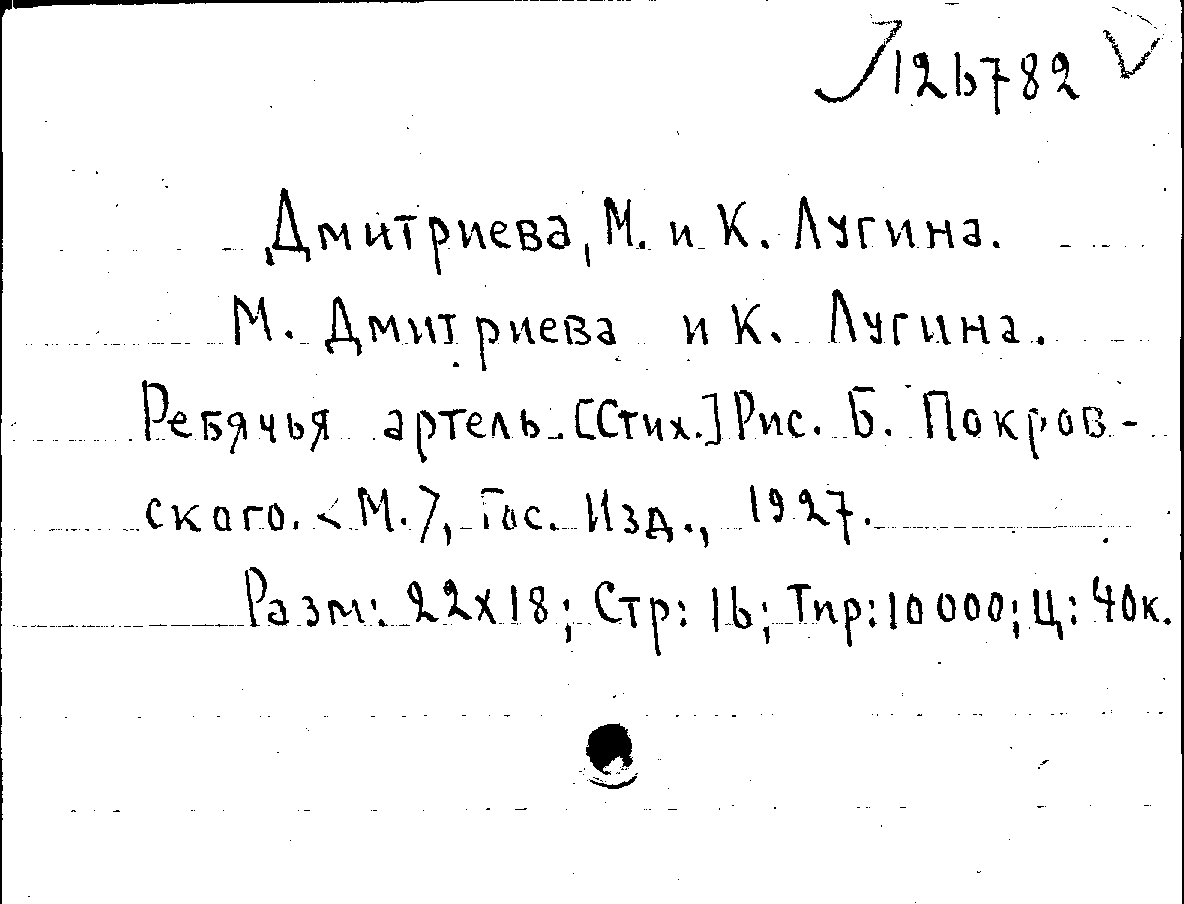 Л126782 V
Дмитриева, М. и К. Лугина.
М. Дмитриева и К. Лугина.
Ребячья артель. [Стих.] Рис. Б. Покров-
ского. <М.>, Гос. Изд., 1927.
Разм: 22х18; Стр: 16; Тир: 10000; Ц: 40к.